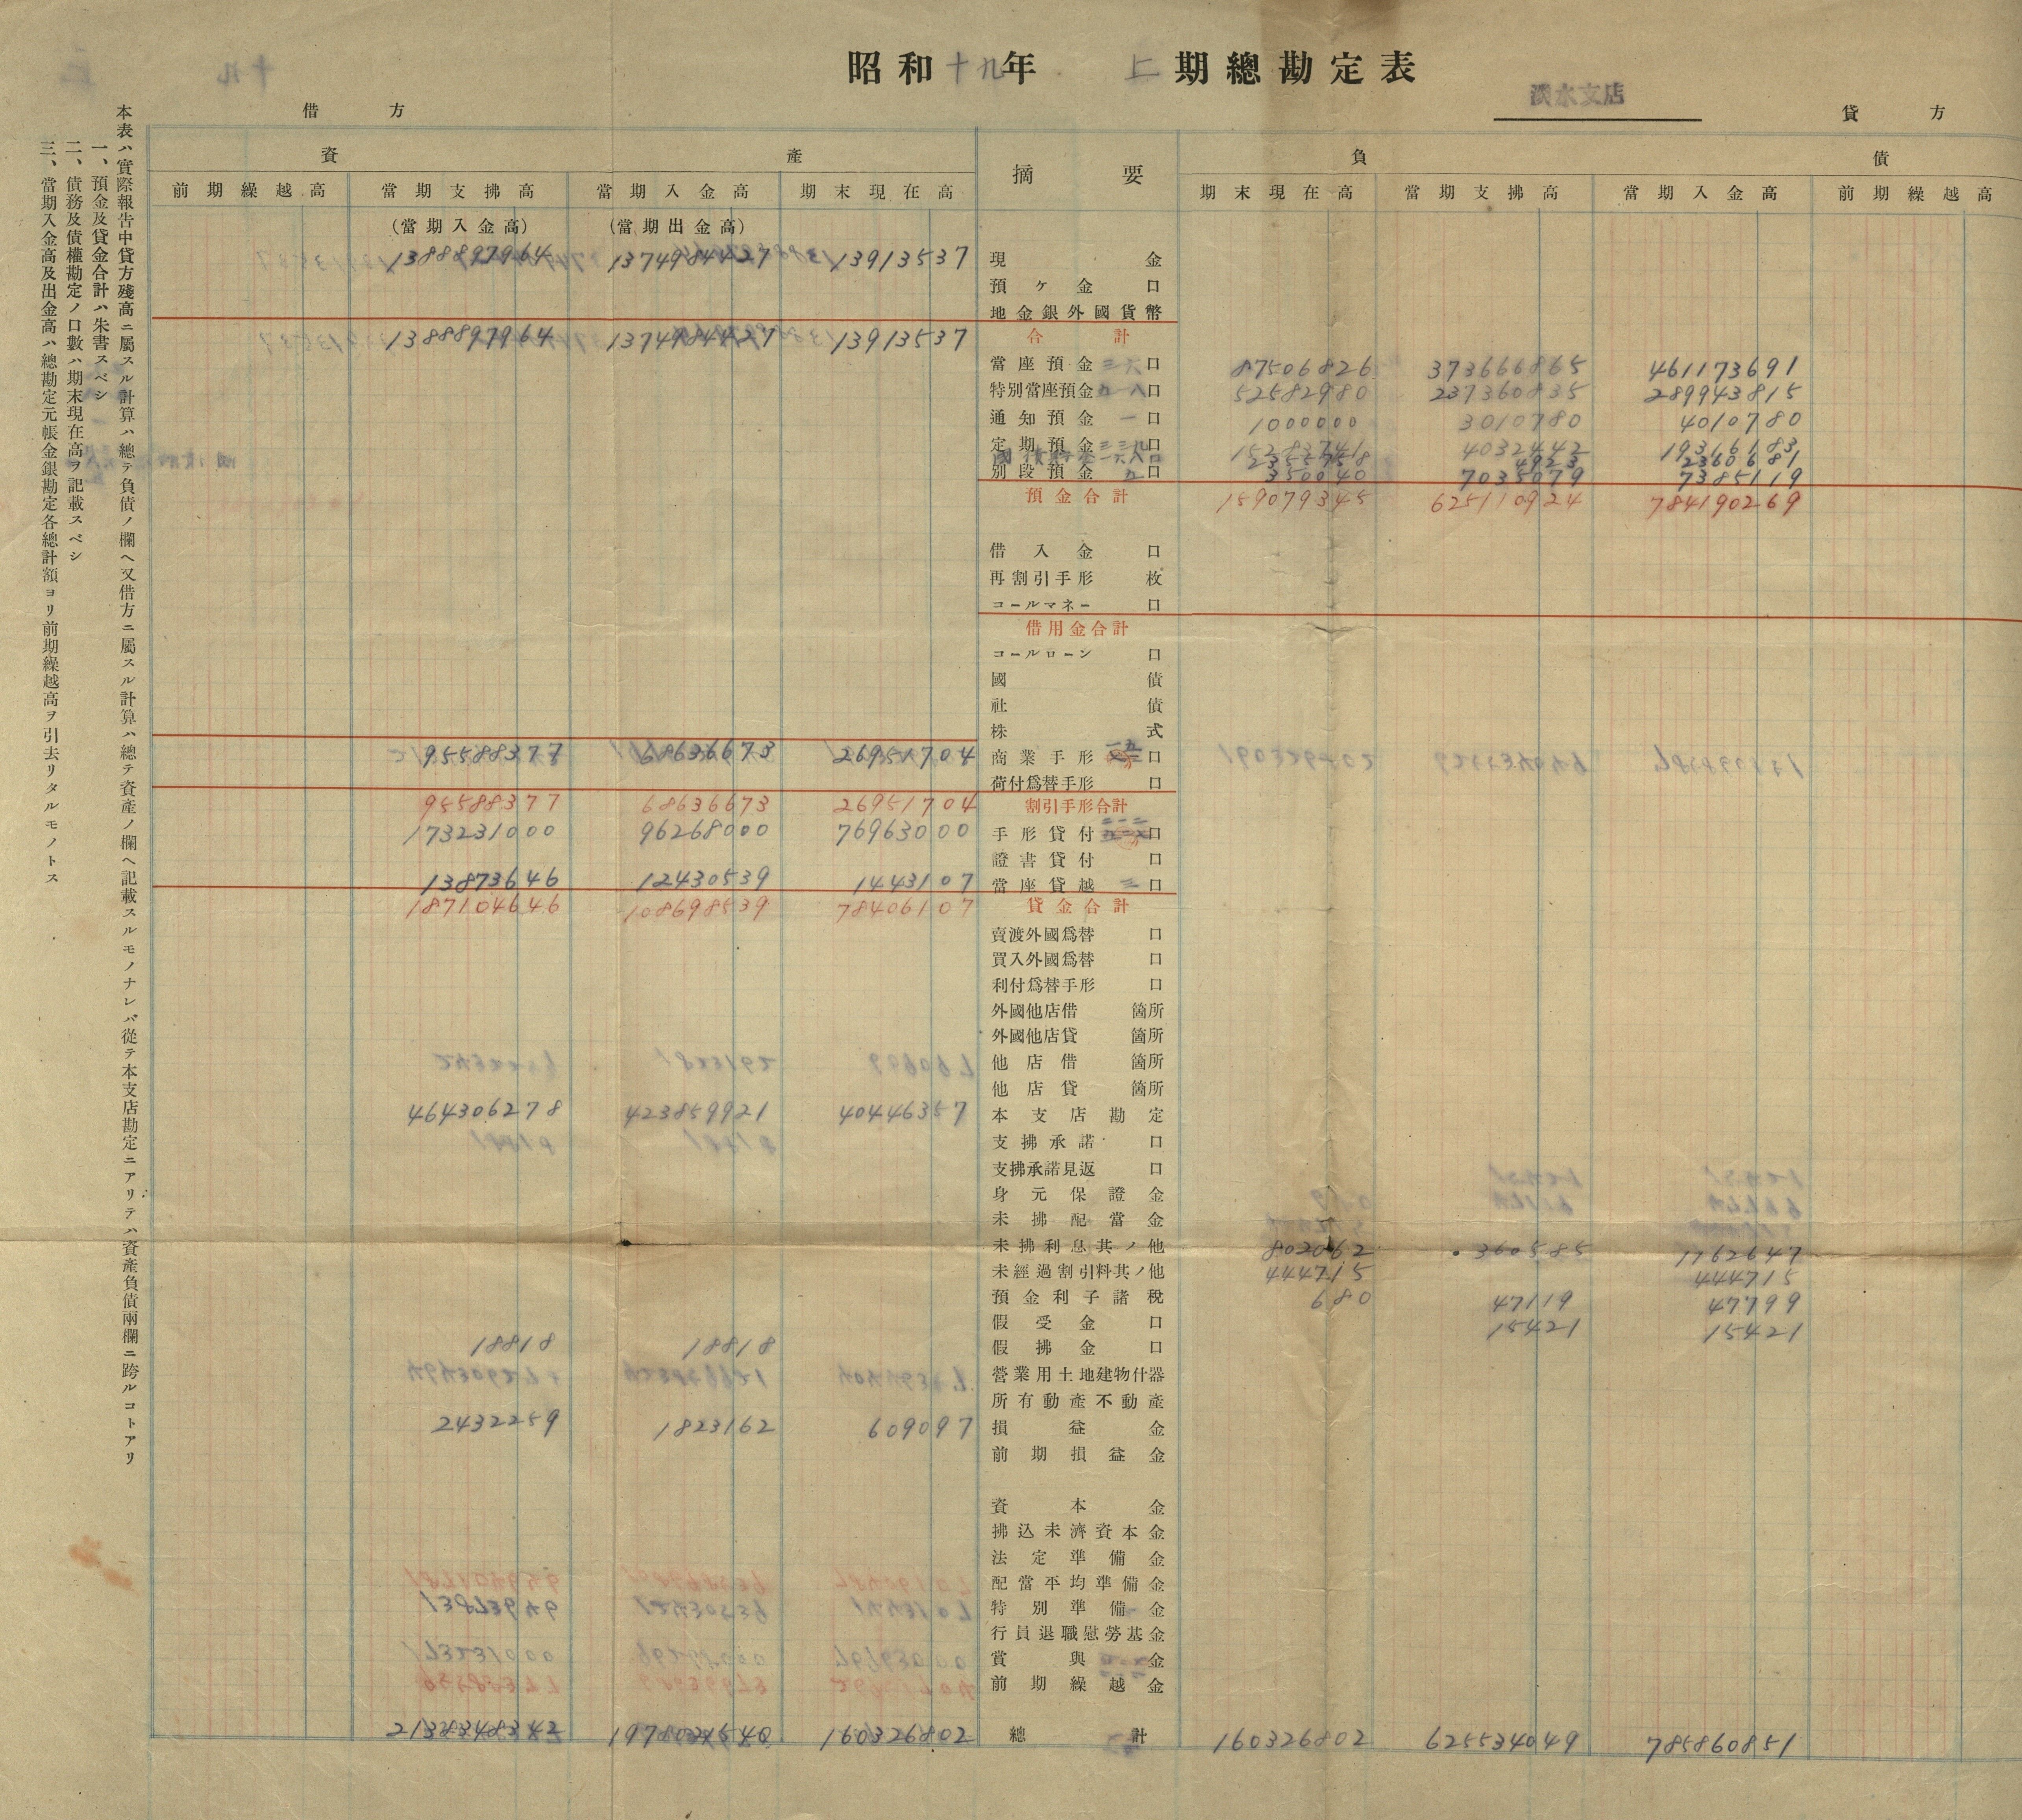 昭和十九年 上期總勘定表
淡水支店
借方 貸方
資產 摘要 負債
前期繰越高 當期支拂高 當期入金高 期末現在高 期末現在高 當期支拂高 當期入金高 前期繰越高
(當期入金高) (當期出金高)
1388897964 1374984427 13913537 現金
預ヶ金 口
地金銀外國貨幣
1388897964 1374984427 13913537 合計
當座預金 三六口 87506826 373666865 461173691
特別當座預金 九一八口 52582980 237360835 289943815
通知預金 一口 1000000 3010780 4010780
定期預金 三三九口 15283741 4032442 19316183
國債貯金 一六八口 2355758 4923 2360681
別段預金 九口 350040 7035079 7385119
預金合計 159079345 625110924 784190269
借入金 口
再割引手形 枚
コールマネー 口
借用金合計
コールローン 口
國債
社債
株式
95588377 68636673 26951704 商業手形 口
荷付爲替手形 口
95588377 68636673 26951704 割引手形合計
173231000 96268000 76963000 手形貸付 口
證書貸付 口
13873646 12430539 1443107 當座貸越 三口
187104646 108698539 78406107 貸金合計
賣渡外國爲替 口
買入外國爲替 口
利付爲替手形 口
外國他店借 箇所
外國他店貸 箇所
他店借 箇所
他店貸 箇所
464306278 423859921 40446357 本支店勘定
支拂承諾 口
支拂承諾見返 口
身元保證金
未拂配當金
未拂利息其ノ他 802062 360585 1162647
未經過割引料其ノ他 444715 444715
預金利子諸稅 680 47119 47799
假受金 口 15421 15421
18818 18818 假拂金 口
營業用土地建物什器
所有動產不動產
2432259 1823162 609097 損益金
前期損益金
資本金
拂込未濟資本金
法定準備金
配當平均準備金
特別準備金
行員退職慰勞基金
賞與金
前期繰越金
2138348342 1978021540 160326802 總計 160326802 625534049 785860851
本表ハ實際報告中貸方殘高ニ屬スル計算ハ總テ負債ノ欄ヘ又借方ニ屬スル計算ハ總テ資產ノ欄ヘ記載スルモノナレバ從テ本支店勘定ニアリテハ資產負債兩欄ニ跨ルコトアリ
一、預金及貸金合計ハ朱書スベシ
二、債務及債權勘定ノ口數ハ期末現在高ヲ記載スベシ
三、當期入金高及出金高ハ總勘定元帳金銀勘定各總計額ヨリ前期繰越高ヲ引去リタルモノトス